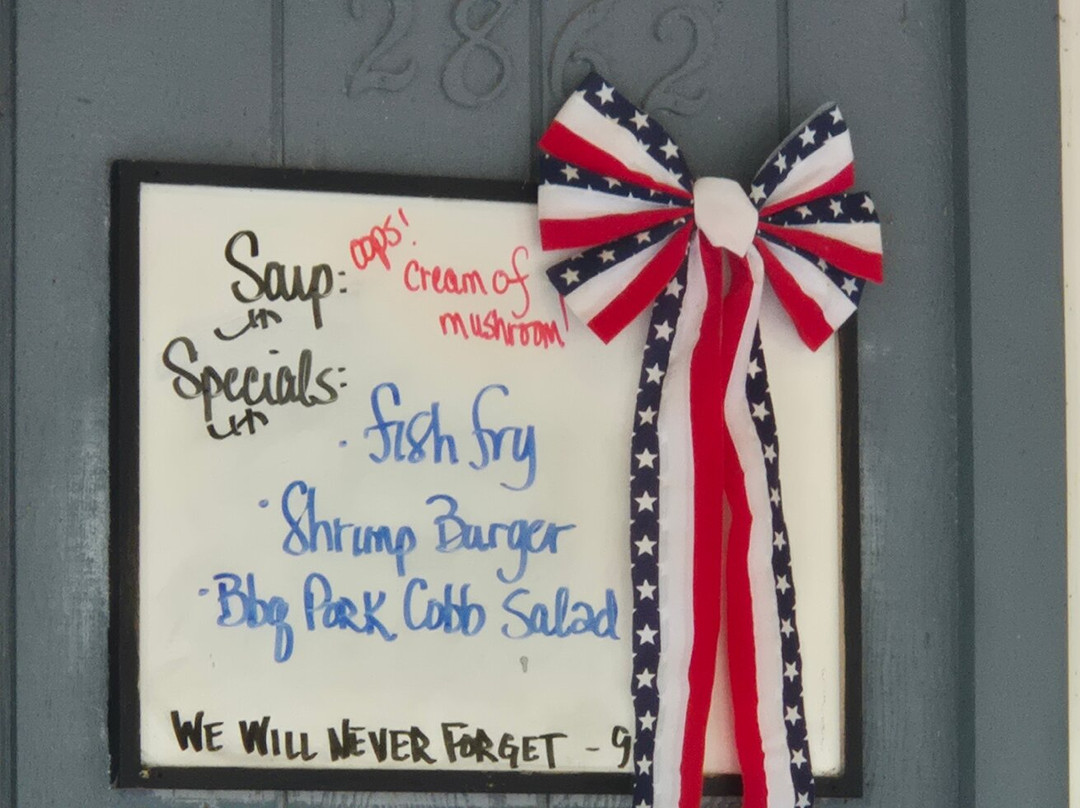 2862
Soup: oops!
cream of
mushroom!
Specials:
· fish fry
· Shrimp Burger
· Bbq Pork Cobb Salad
WE WILL NEVER FORGET - 9